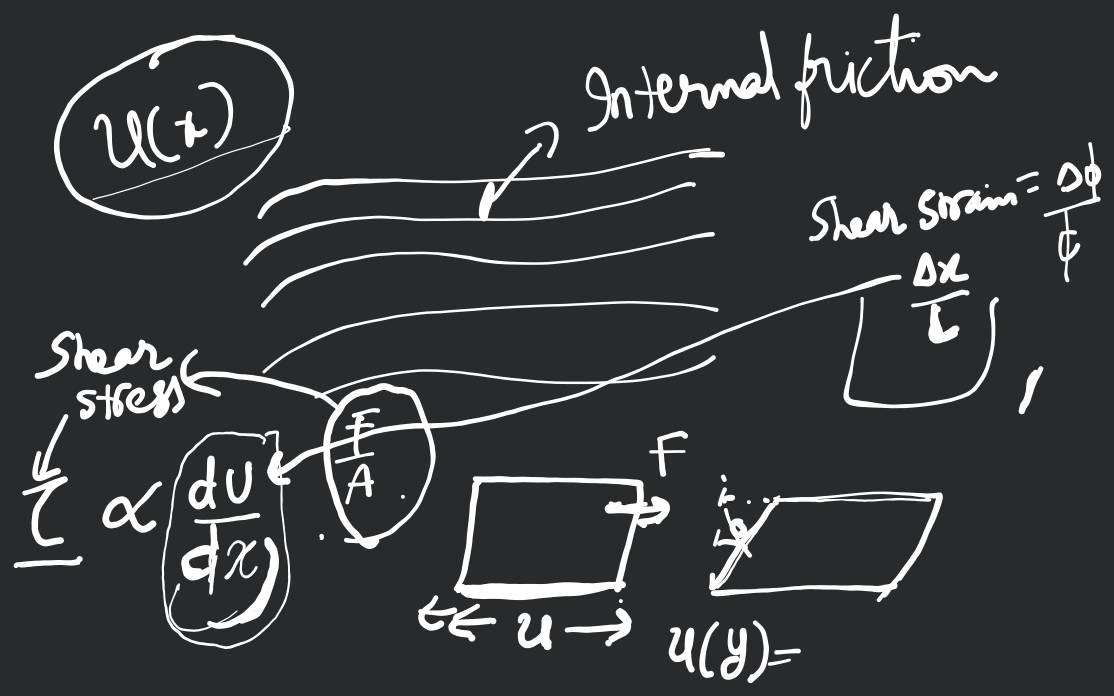 Internal friction
U(x)
Shear strain = Δϕ
Δx
L
Shear
stress
F
A
τ ∝ dU
dx
F
ϕ
u
u(y)=